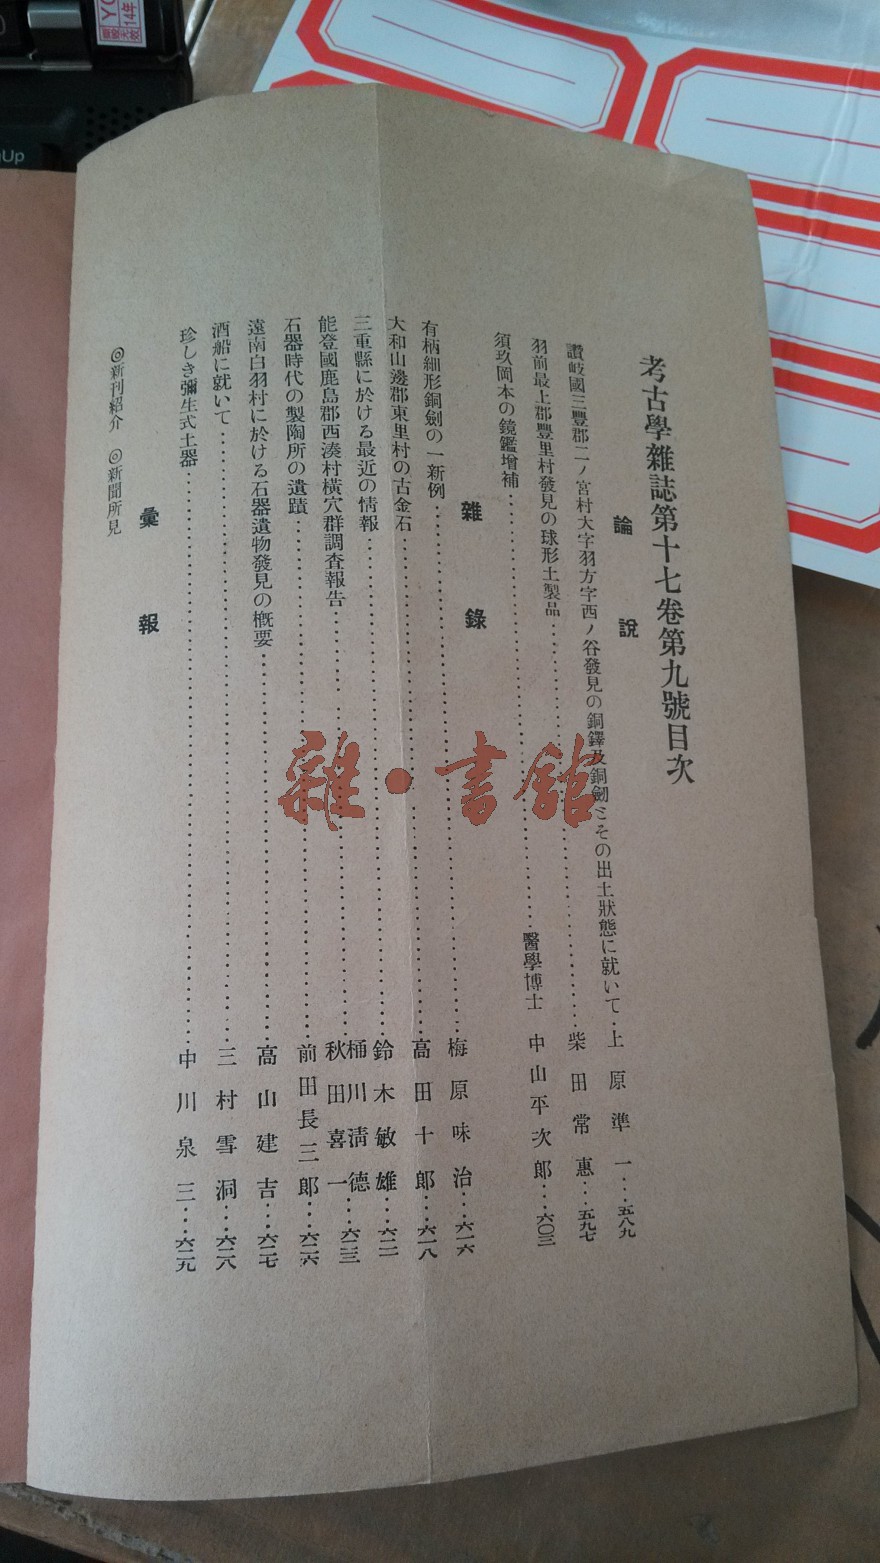 考古學雜誌第十七卷第九號目次
論說
讚岐國三豐郡二ノ宮村大字羽方字西ノ谷發見の銅鐸及銅劍ミその出土狀態に就いて‥上原準一‥‥五八九
羽前最上郡豐里村發見の球形土製品‥‥‥‥柴田常惠‥‥五九七
須玖岡本の鏡鑑增補‥‥‥‥醫學博士 中山平次郎‥‥六〇三
雜錄
有柄細形銅劍の一新例‥‥‥‥梅原味治‥‥六一六
大和山邊郡東里村の古金石‥‥‥‥高田十郎‥‥六一八
三重縣に於ける最近の情報‥‥‥‥鈴木敏雄‥‥六二二
能登國鹿島郡西湊村橫穴群調査報告‥‥‥‥桶川淸德 秋田喜一‥‥六二三
石器時代の製陶所の遺蹟‥‥‥‥前田長三郎‥‥六二六
遠南白羽村に於ける石器遺物發見の槪要‥‥‥‥高山建吉‥‥六二七
酒船に就いて‥‥‥‥三村雪洞‥‥六二八
珍しき彌生式土器‥‥‥‥中川泉三‥‥六二九
彙報
◎新刊紹介 ◎新聞所見
雜·書館
gUp
YO
14年